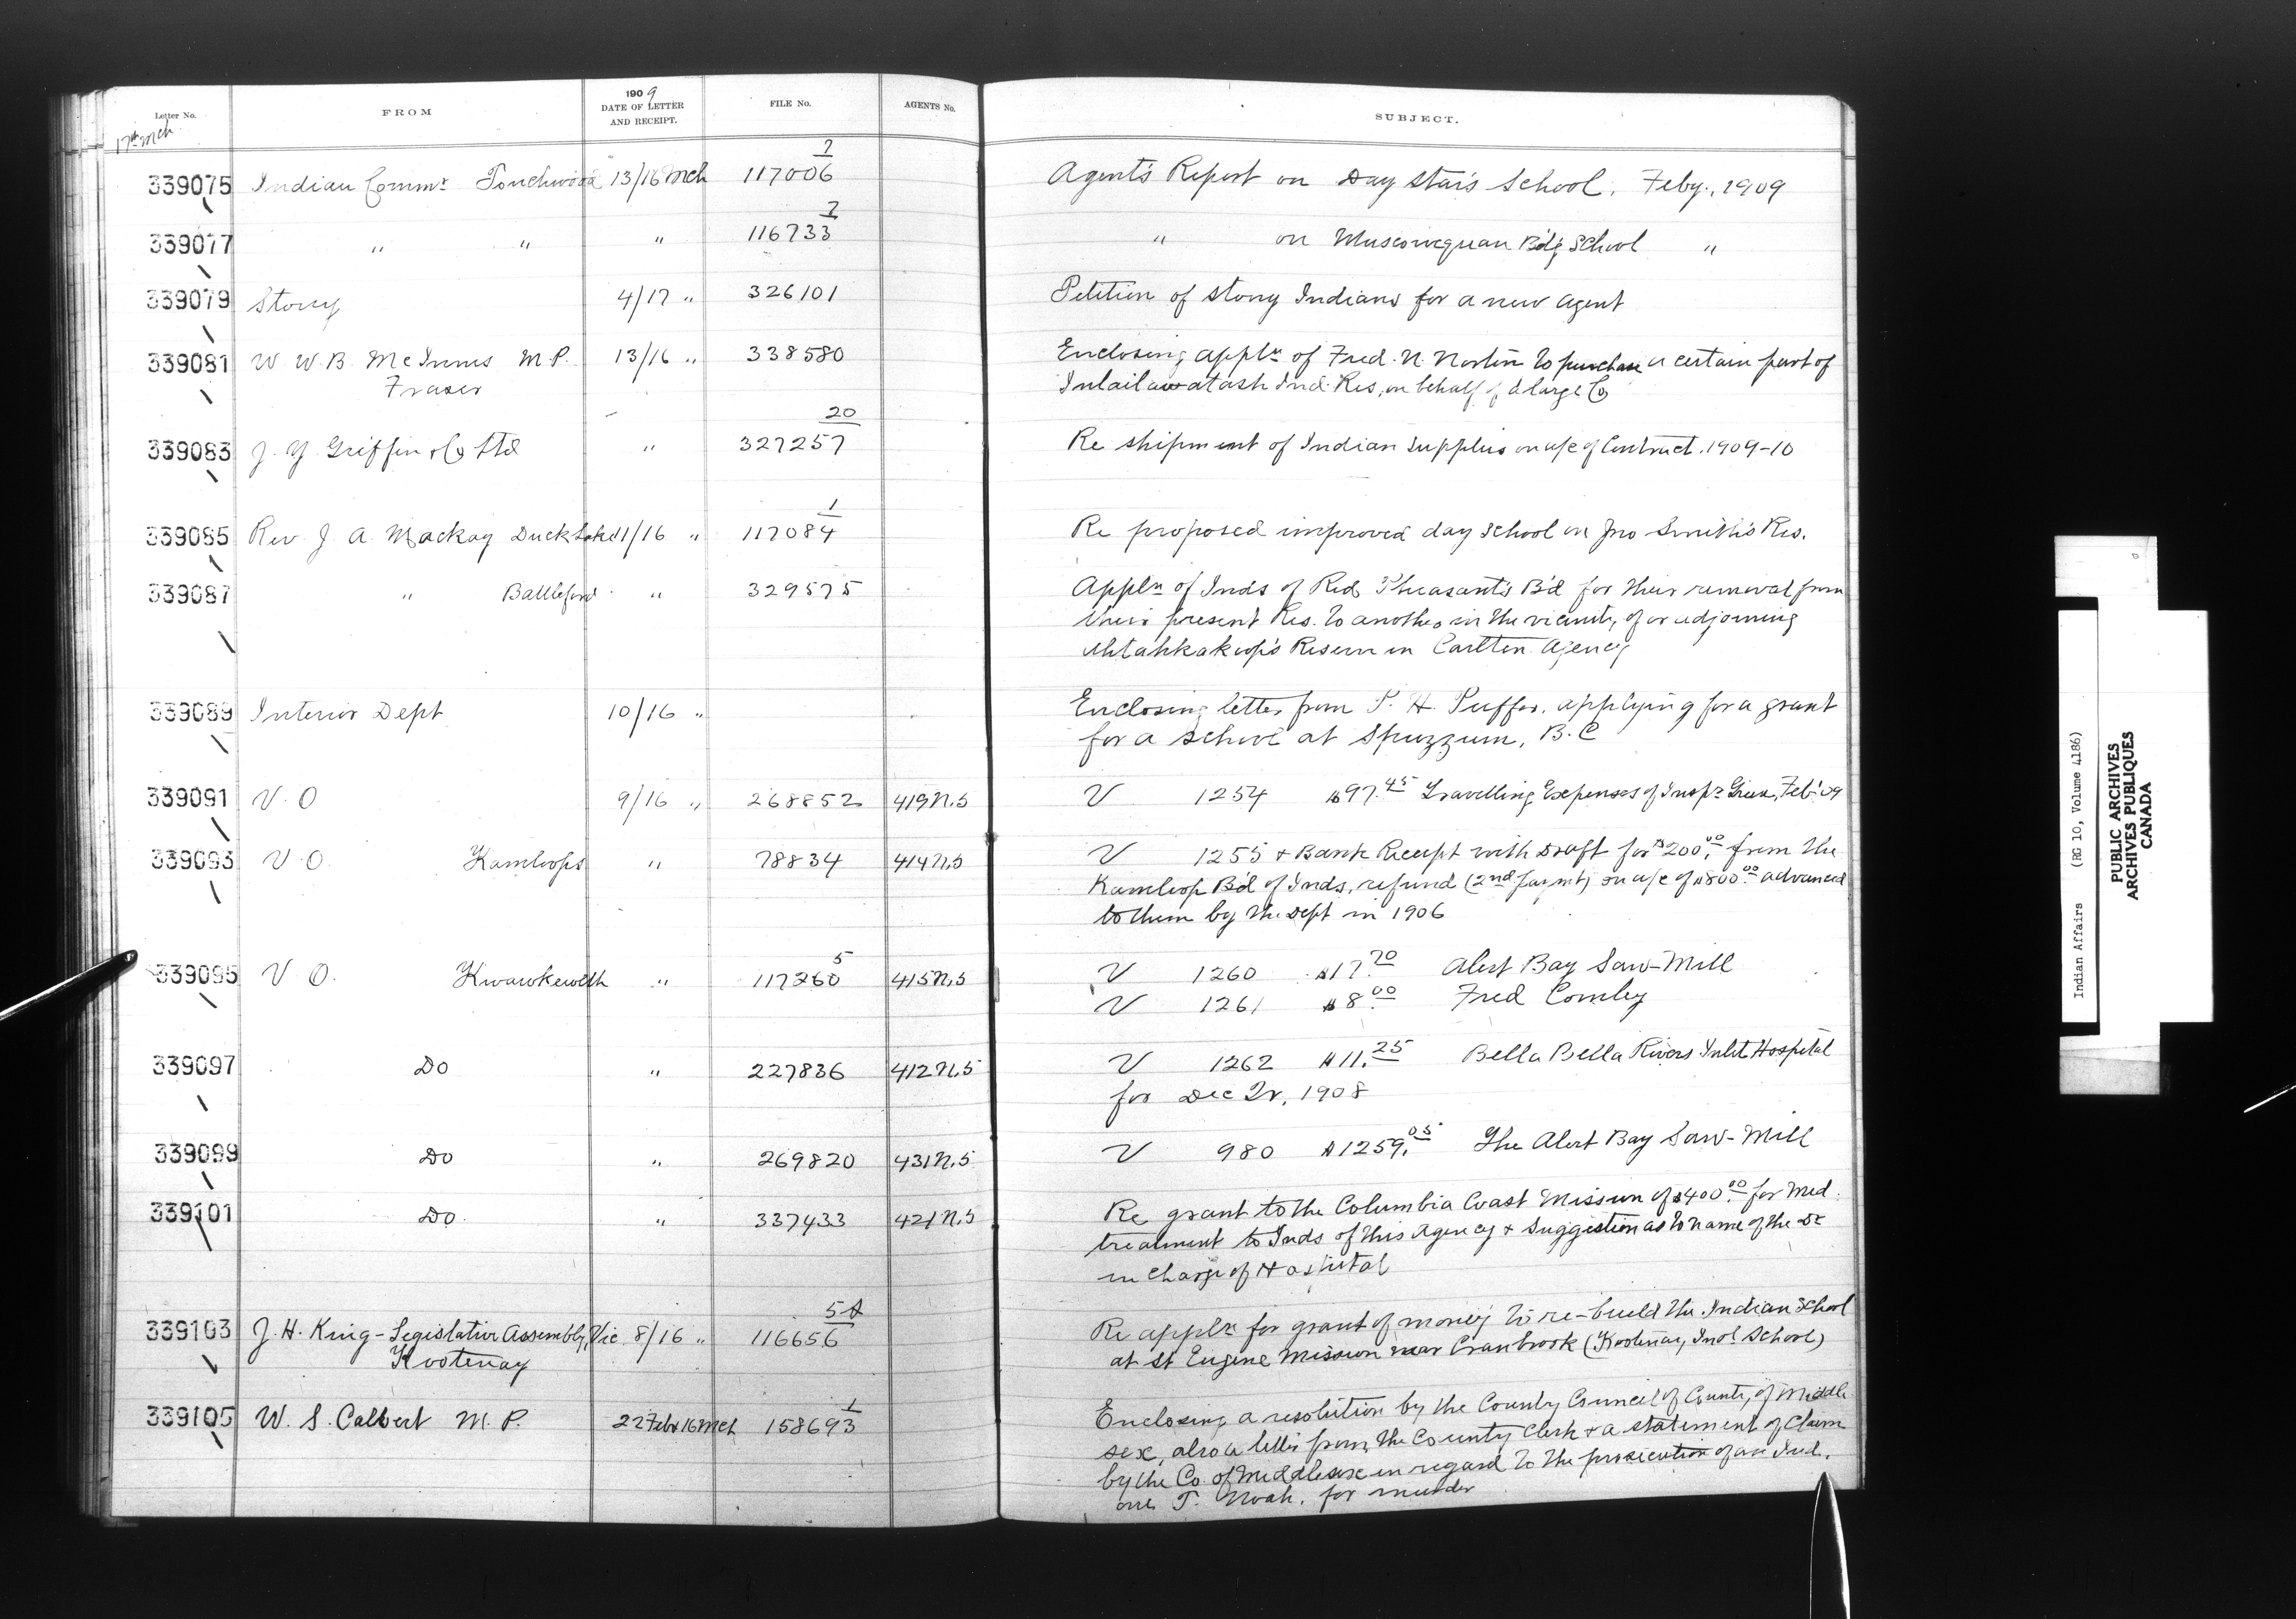 Letter No.
FROM
1909
DATE OF LETTER
AND RECEIPT.
FILE No.
AGENTS No.
SUBJECT.
17th Mch
339075 Indian Commr Touchwood 13/16 Mch 117006 7 Agent's Report on Day Star's School, Feby., 1909
339077 " " " 116733 7 " on Muscowequan Bdg School "
339079 Stony 4/17 " 326101 Petition of Stony Indians for a new Agent
339081 W. W. B. McInnes M.P. 13/16 " 338580 Enclosing appln of Fred. N. Norton to purchase a certain part of
Fraser Ind. Res, on behalf of a large Co
339083 J. Y. Griffin & Co Ltd " 327257 20 Re shipment of Indian Supplies on a/c of Contract. 1909-10
339085 Rev. J. A. Mackay Duck Lake 11/16 " 117084 1 Re proposed improved day school on Jno Smith's Res.
339087 " Battleford " 329575 Appln of Inds of Red Pheasant's B'd for their removal from
their present Res. to another in the vicinity of or adjoining
Ahtahkakoop's Reserve in Carlton Agency
339089 Interior Dept 10/16 " Enclosing letter from P. H. Puffer, applying for a grant
for a school at Spuzzum, B.C
339091 V.O 9/16 " 268852 419 N.S V 1254 $97.45 Travelling Expenses of Inspr Green, Feb '09
339093 V.O. Kamloops " 78834 414 N.S V 1255 & Bank Receipt with Draft for $200.00 from the
Kamloop B'd of Inds, refund (2nd paymt) on a/c of $800.00 advanced
to them by the Dept in 1906
339095 V.O. Kwawkewlth " 117260 5 415 N.S V 1260 $17.70 Alert Bay Saw-Mill
V 1261 $8.00 Fred Comley
339097 Do " 227836 412 N.S V 1262 $11.25 Bella Bella Rivers Inlet Hospital
for Dec Qr, 1908
339099 Do " 269820 431 N.S V 980 $1259.05 The Alert Bay Saw-Mill
339101 Do " 337433 421 N.S Re grant to the Columbia Coast Mission of $400.00 for Med.
treatment to Inds of this Agency & suggestion as to name of the Dr
in charge of Hospital
339103 J. H. King - Legislative Assembly, Vic 8/16 " 116656 5A Re appln for grant of money to re-build the Indian School
Kootenay at St Eugene Mission near Cranbrook (Kootenay Ind School)
339105 W. S. Calvert M.P. 22 Feb & 16 Mch 158693 1 Enclosing a resolution by the County Council of County of Middle
sex, also a letter from the County Clerk & a statement of Claim
by the Co. of Middlesex in regard to the prosecution of an Ind.
one T. Noah, for murder
Indian Affairs (RG 10, Volume 4186)
PUBLIC ARCHIVES
ARCHIVES PUBLIQUES
CANADA